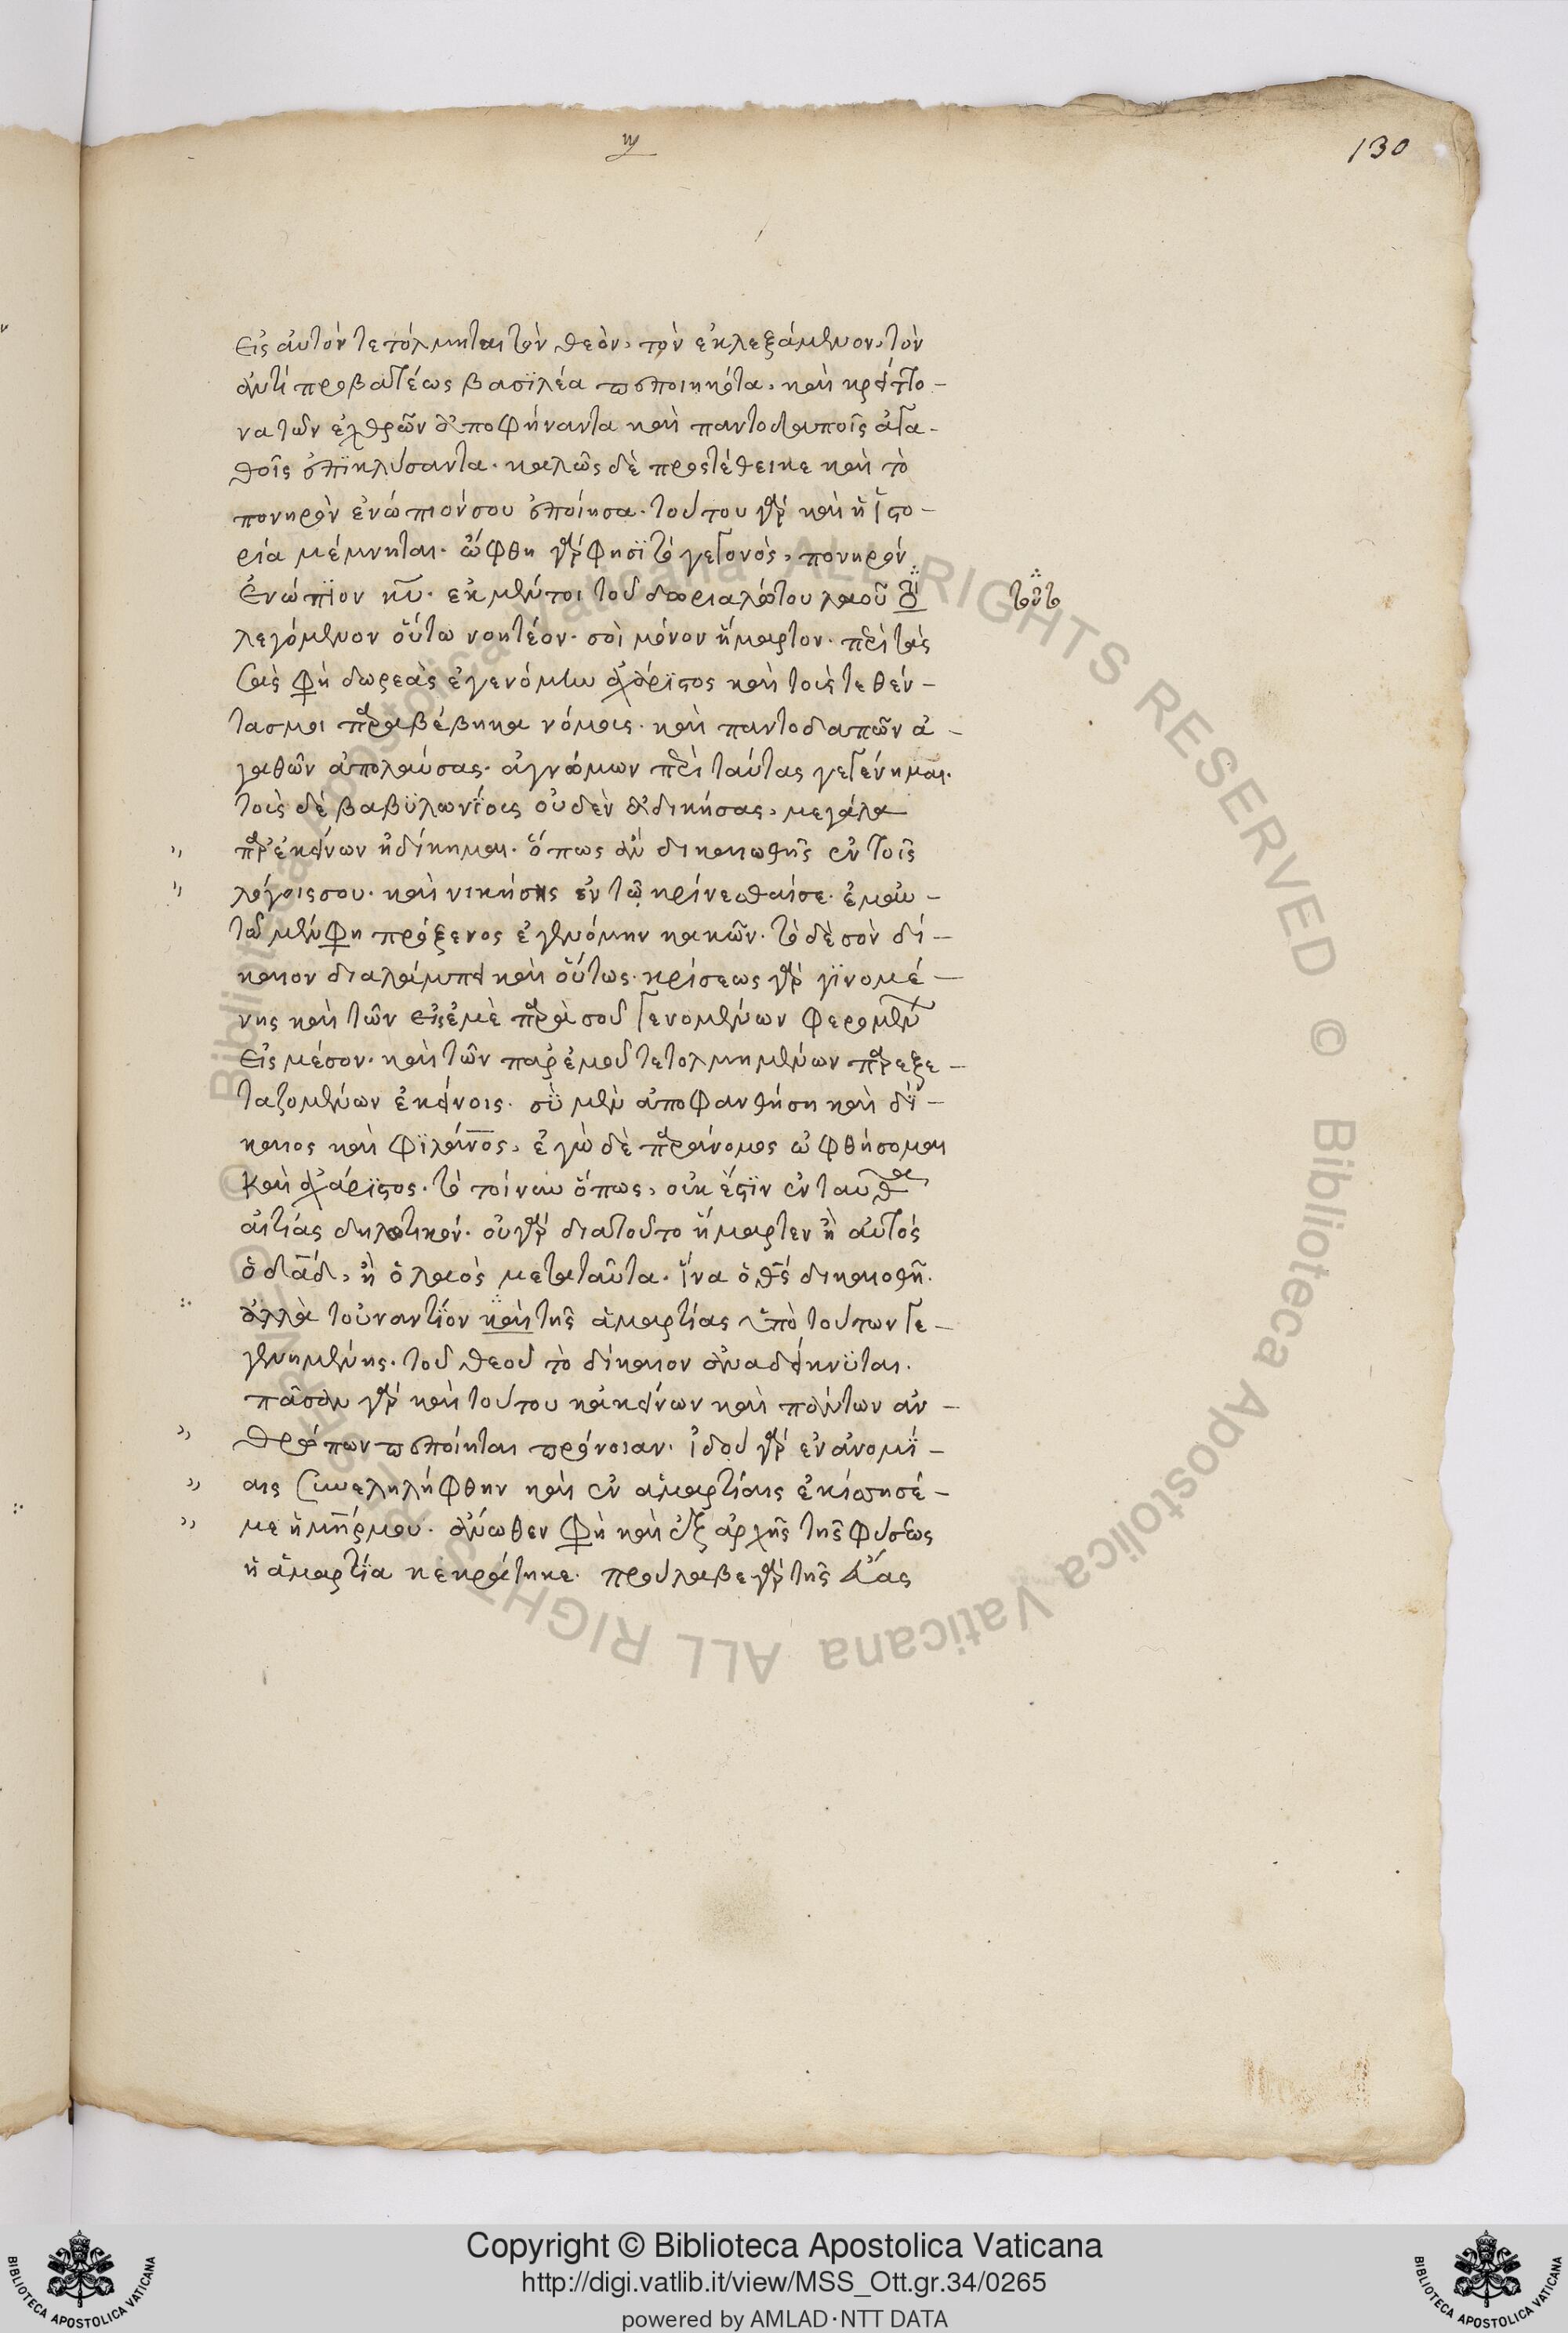 130
εἰς αὐτὸν τετόλμηται τὸν θεὸν, τὸν ἐκλεξάμενον, τὸν
ἀντὶ προβατέως βασϊλέα πεποιηκότα, καὶ κρείττο-
να τῶν ἐχθρῶν ἀποφήναντα καὶ παντοδαποῖς ἀγα-
θοῖς ἐπϊκλύσαντα. καλῶς δὲ προστέθεικε καὶ τὸ
πονηρὸν ἐνώπιόν σου ἐποίησα. τούτου γὰρ καὶ ἡ ἱστο-
ρία μέμνηται. ὤφθη γὰρ φησϊ τὸ γεγονὸς, πονηρὸν
ἐνώπϊον κυ. ἐκ μέντοι τοῦ δοριαλώτου λαοῦ τὸ
τοῦτο
λεγόμενον οὕτω νοητέον. σοὶ μόνον ἥμαρτον. περὶ τὰς
σὰς φη δωρεὰς ἐγενόμην ἀχάρϊστος καὶ τοὺς τεθέν-
τας μοι παραβέβηκα νόμους. καὶ παντοδαπῶν ἀ-
γαθῶν ἀπολαύσας. ἀγνώμων περὶ ταύτας γεγένημαι.
τοὺς δὲ βαβϋλωνΐους οὐδὲν ἀδικήσας, μεγάλα
παρ' ἐκείνων ἠδίκημαι. ὅπως ἂν δικαιωθῇς ἐν τοῖς
λόγοις σου. καὶ νικήσῃς ἐν τῷ κρίνεσθαί σε. ἐμαυ-
τῷ μέν φη πρόξενος ἐγενόμην κακῶν. τὸ δὲ σὸν δί-
καιον διαλάμπει καὶ οὕτως. κρίσεως γὰρ γϊνομέ-
νης καὶ τῶν εἰς ἐμὲ παρὰ σοῦ γενομένων φερομέν
εἰς μέσον. καὶ τῶν παρ' ἐμοῦ τετολμημένων παρεξε-
ταζομένων ἐκείνοις. σϋ μὲν ἀποφανθήσῃ καὶ δΐ-
καιος καὶ φϊλάνος, ἐγὼ δὲ παράνομος ὀφθήσομαι
καὶ ἀχάρϊστος. τὸ τοίνυν ὅπως, οὐκ ἔστϊν ἐνταῦθα
αἰτίας δηλωτικόν. οὐ γὰρ διατοῦτο ἥμαρτεν ἢ αὐτὸς
ὁ δαδ, ἢ ὁ λαὸς μεταταῦτα. ἵνα ὁ θς δικαιωθῇ.
ἀλλὰ τοὐναντΐον καὶ τῆς ἁμαρτίας ὑπὸ τούτων γε-
γενημένης. τοῦ θεοῦ τὸ δίκαιον ἀναδείκνϋται.
πᾶσαν γὰρ καὶ τούτου κἀκείνων καὶ πάντων ἀν-
θρώπων πεποίηται πρόνοιαν. ἰδοὺ γὰρ ἐν ἀνομΐ-
αις συνελήφθην καὶ ἐν ἁμαρτίαις ἐκίσσησέ-
με ἡ μηρ μου. ἄνωθεν φη καὶ ἐξ ἀρχῆς τῆς φύσεως
ἡ ἁμαρτΐα κεκράτηκε. προύλαβε γὰρ τῆς εὔας
Copyright © Biblioteca Apostolica Vaticana
http://digi.vatlib.it/view/MSS_Ott.gr.34/0265
powered by AMLAD·NTT DATA